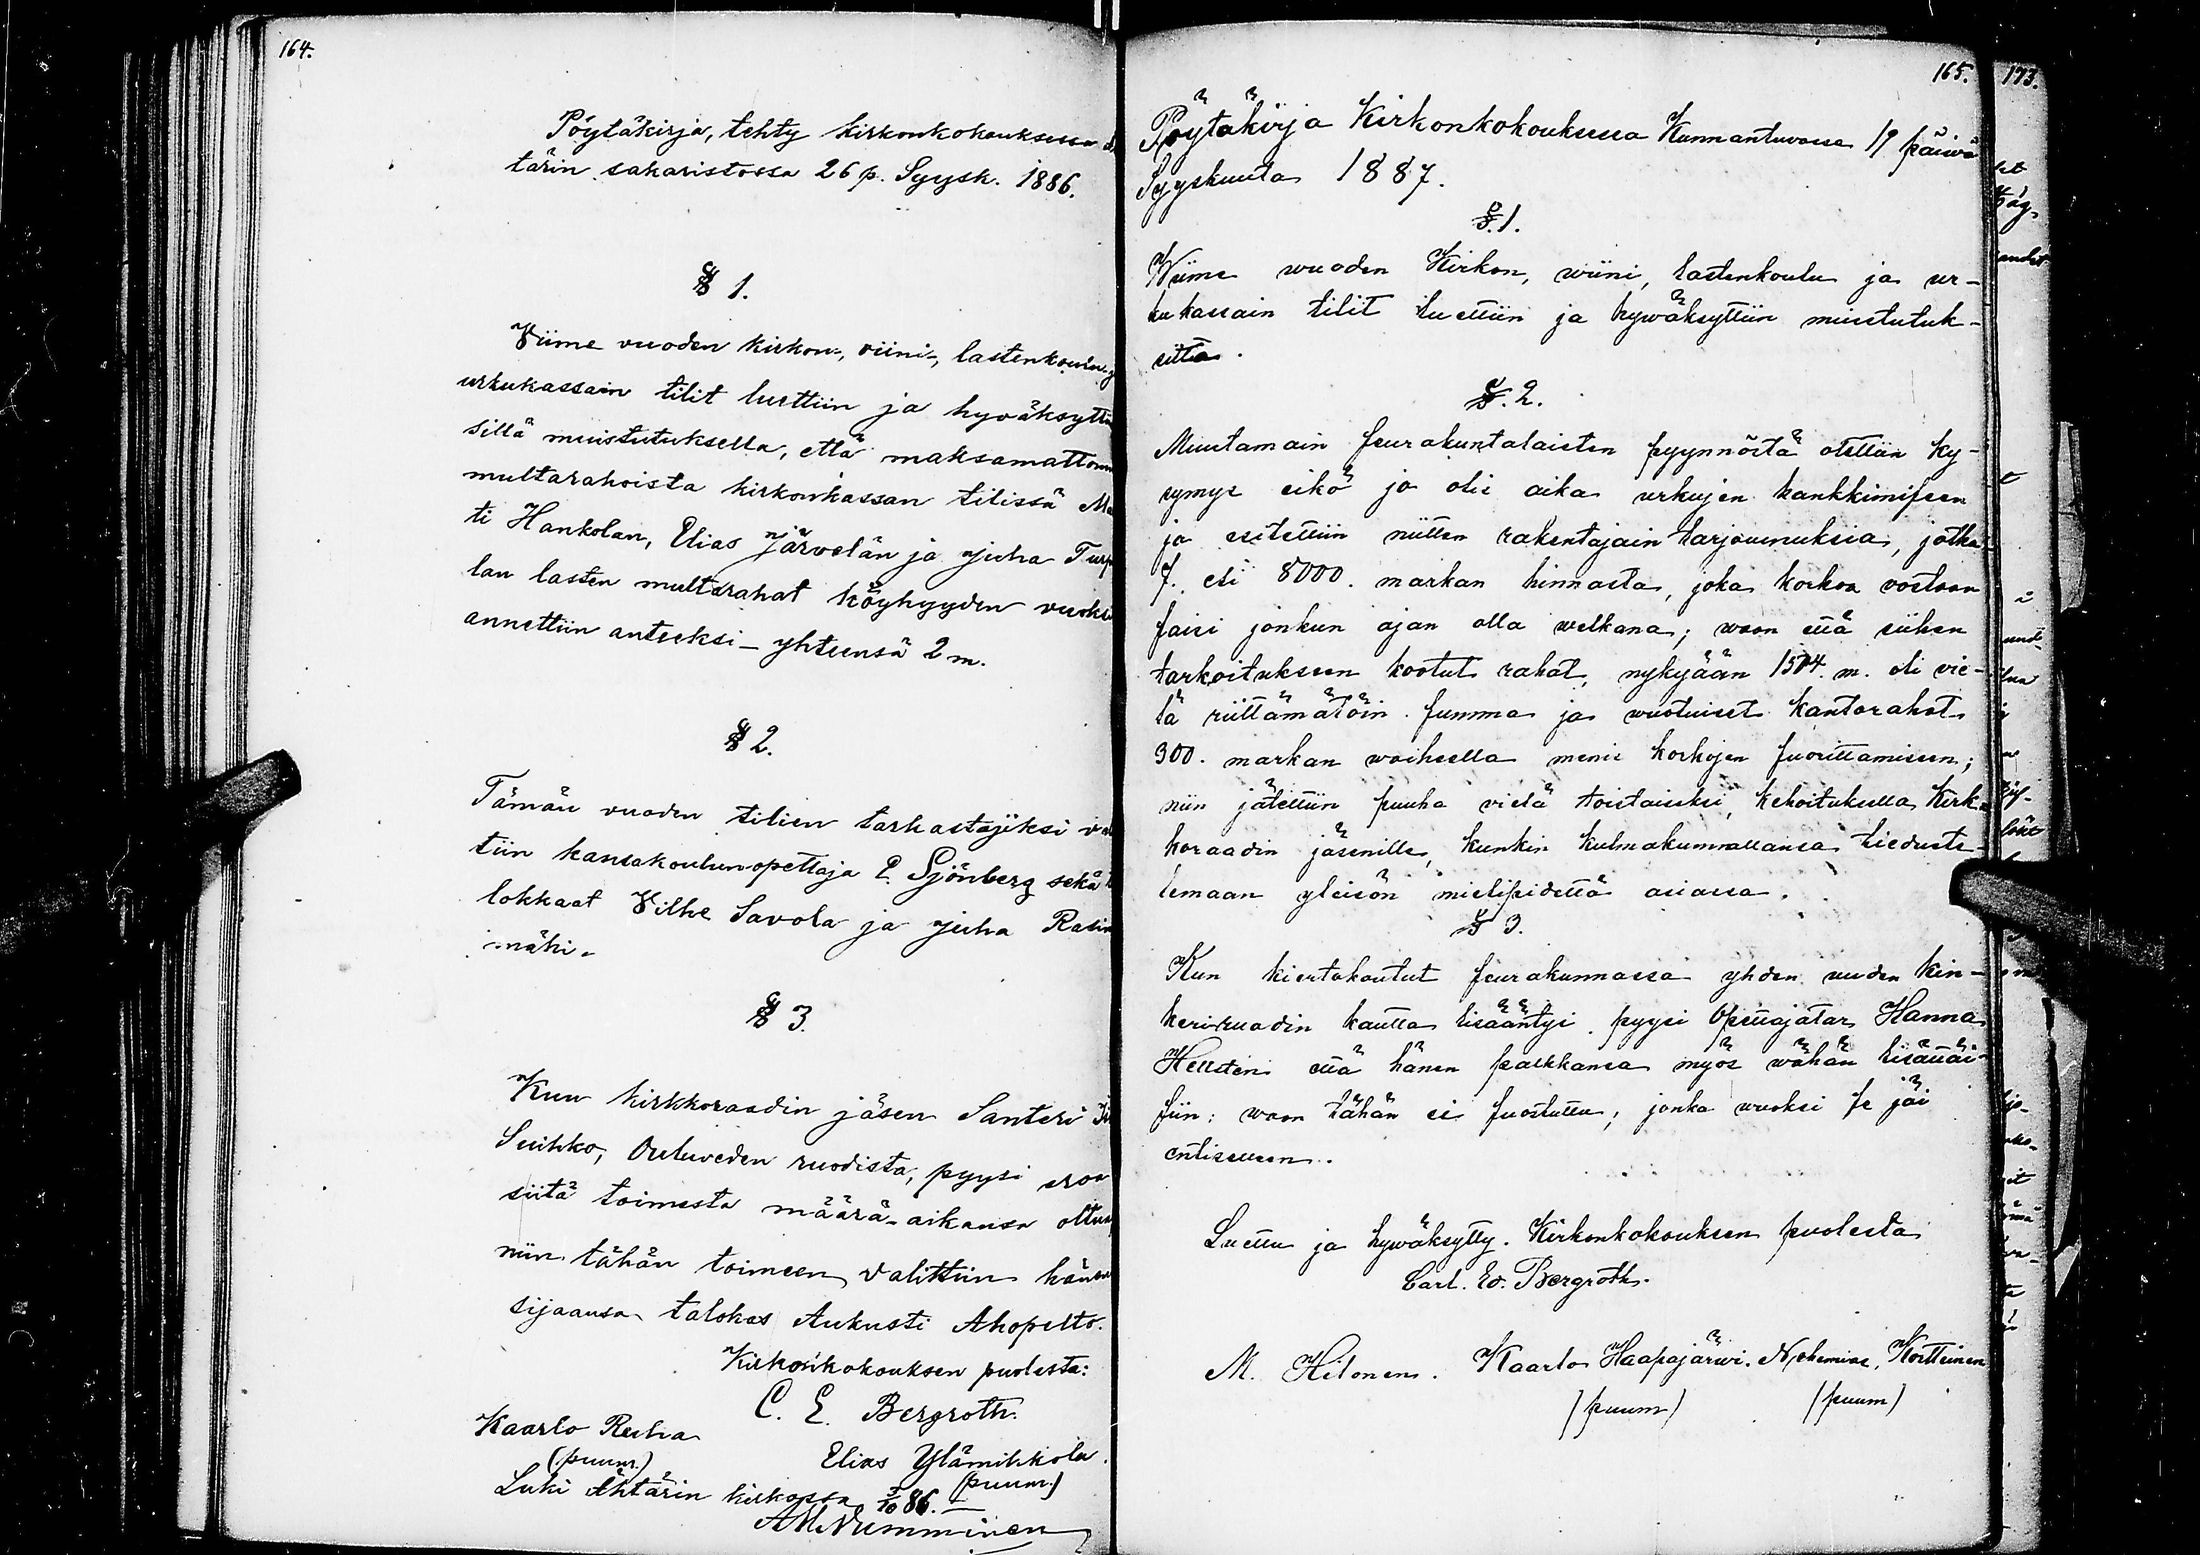 164.
Pöytäkirja, tehty kirkonkokouksessa
tärin sakaristossa 26 p. Syysk. 1886.
§ 1.
Viime vuoden kirkon-, viini-, lastenkoulu-
urkukassain tilit luettiin ja hyväksytti
sillä muistutuksella, että maksamattom
multarahoista kirkonkassan tilissä Ma
ti Hankolan, Elias Järvelän ja Juha Turp
lan lasten multarahat köyhyyden vuoksi
annettiin anteeksi – yhteensä 2 m.
§ 2.
Tämän vuoden tilien tarkastajiksi va
tiin kansakoulunopettaja E. Sjönberg sekä
lokkaat Vilhe Savola ja Juha Rasin
mäki.
§ 3.
Kun kirkkoraadin jäsen Santeri
Suihko, Ouluveden ruodista, pyysi eroa
siitä toimesta määrä-aikansa oltua
niin tähän toimeen valittiin hänen
sijaansa talokas Aukusti Ahopelto.
Kirkonkokouksen puolesta:
C. E. Bergroth.
Kaarlo Reiha
(puum.)
Elias Ylämikkola.
(puum.)
Luki Ähtärin kirkossa 3/10 86.
AM Numminen
165.
Pöytäkirja Kirkonkokouksessa Kunnantuvassa 19 päivä
Syyskuuta 1887.
§. 1.
Wiime wuoden Kirkon, wiini, lastenkoulu ja ur-
kukassain tilit luettiin ja hywäksyttiin muistutuk-
sitta.
§. 2.
Muutamain seurakuntalaisten pyynnöstä otettiin ky-
symys eikö jo olis aika urkujen hankkimiseen
ja esitettiin niitten rakentajain tarjoumuksia, jotka
s. eli 8000. markan hinnasta, joka korkoa vastaan
saisi jonkun ajan olla welkana; waan että siihen
tarkoitukseen kootut rahat, nykyään 1504. m. oli vie-
lä riittämätöin summa ja wuotuiset kantorahat
300. markan waiheella menis korkojen suorittamiseen;
niin jätettiin puuha vielä toistaiseksi, kehoituksella Kirk-
koraadin jäsenille, kunkin kulmakunnallansa tieduste-
lemaan yleisön mielipidettä asiassa.
§ 3.
Kun kiertokoulut seurakunnassa yhden uuden kin-
keriruodin kautta lisääntyi, pyysi Opettajatar Hanna
Hellsten että hänen palkkansa myös wähän lisättäi-
siin: waan tähän ei suostuttu; jonka wuoksi se jäi
entiselleen.
Luettu ja hywäksytty. Kirkonkokouksen puolesta
Carl. Ed. Bergroth.
M. Hilonen. Kaarlo Haapajärwi. Nehemias Kortteinen
(puum) (puum)
173.